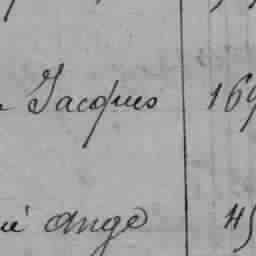 Jacques 169
ange 45